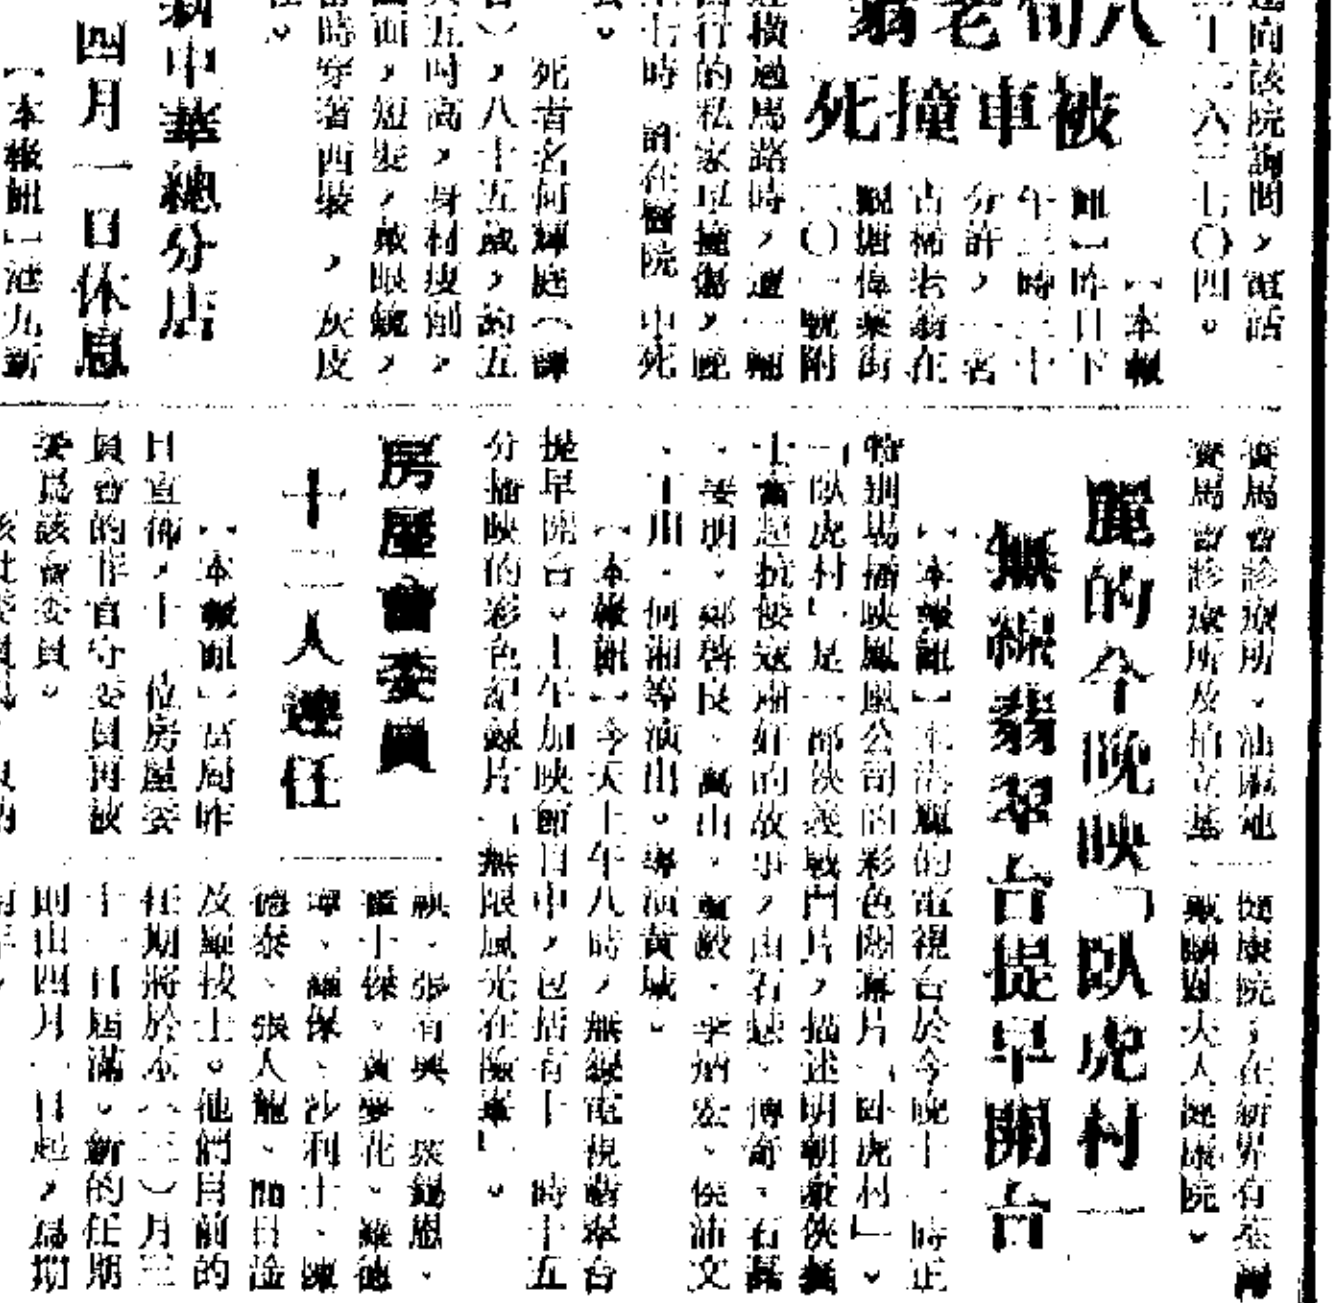 迳向該院詢問，電話
三十二六三七〇四。
八旬老翁
被車撞死
【本報
訊】昨日下
午三時二十
分許，一名
古稀老翁在
觀塘偉業街
二〇一號附
近橫過馬路時，遭一輛
行的私家車撞傷，延
七時 許在醫院中死
去。
死者名何輝庭（譯
音），八十五歲，約五
呎五吋高，身材瘦削，
面，短髮，戴眼鏡，
當時穿着西裝，灰皮
新中華總分店
四月一日休息
【本報訊】港九新
賽馬會診療所、油麻地
賽馬會診療所及柏立基
健康院，在新界有荃灣
戴麟趾夫人健康院。
麗的今晚映「臥虎村」
無線翡翠台提早開台
【本報訊】麗的電視台於今晚十一時正
特別場播映鳳凰公司的彩色闊幕片「臥虎村」。
「臥虎村」是一部俠義戰鬥片，描述明朝
士奮起抗倭寇肅奸的故事，由石慧、傅奇、石磊
、姜明、鄭啓良、高山、董毅、李炳宏、侯浦文
、丁川、何湘等演出。導演黃域。
【本報訊】今天上午八時，無線電視翡翠台
提早開台。上午加映節目中，包括有十一時十五
分播映的彩色紀錄片「無限風光在險峯」。
房屋會委員
十二人連任
【本報訊】當局昨
日宣佈，十二位房屋委
員會的非官守委員再被
委爲該會委員。
張有興、
黃夢花、
沙利士、陳
德泰、張人龍、
及羅拔士。他們目前的
任期將於本（三）月三
十一日屆滿。新的任期
則由四月一日起，爲期
兩年。